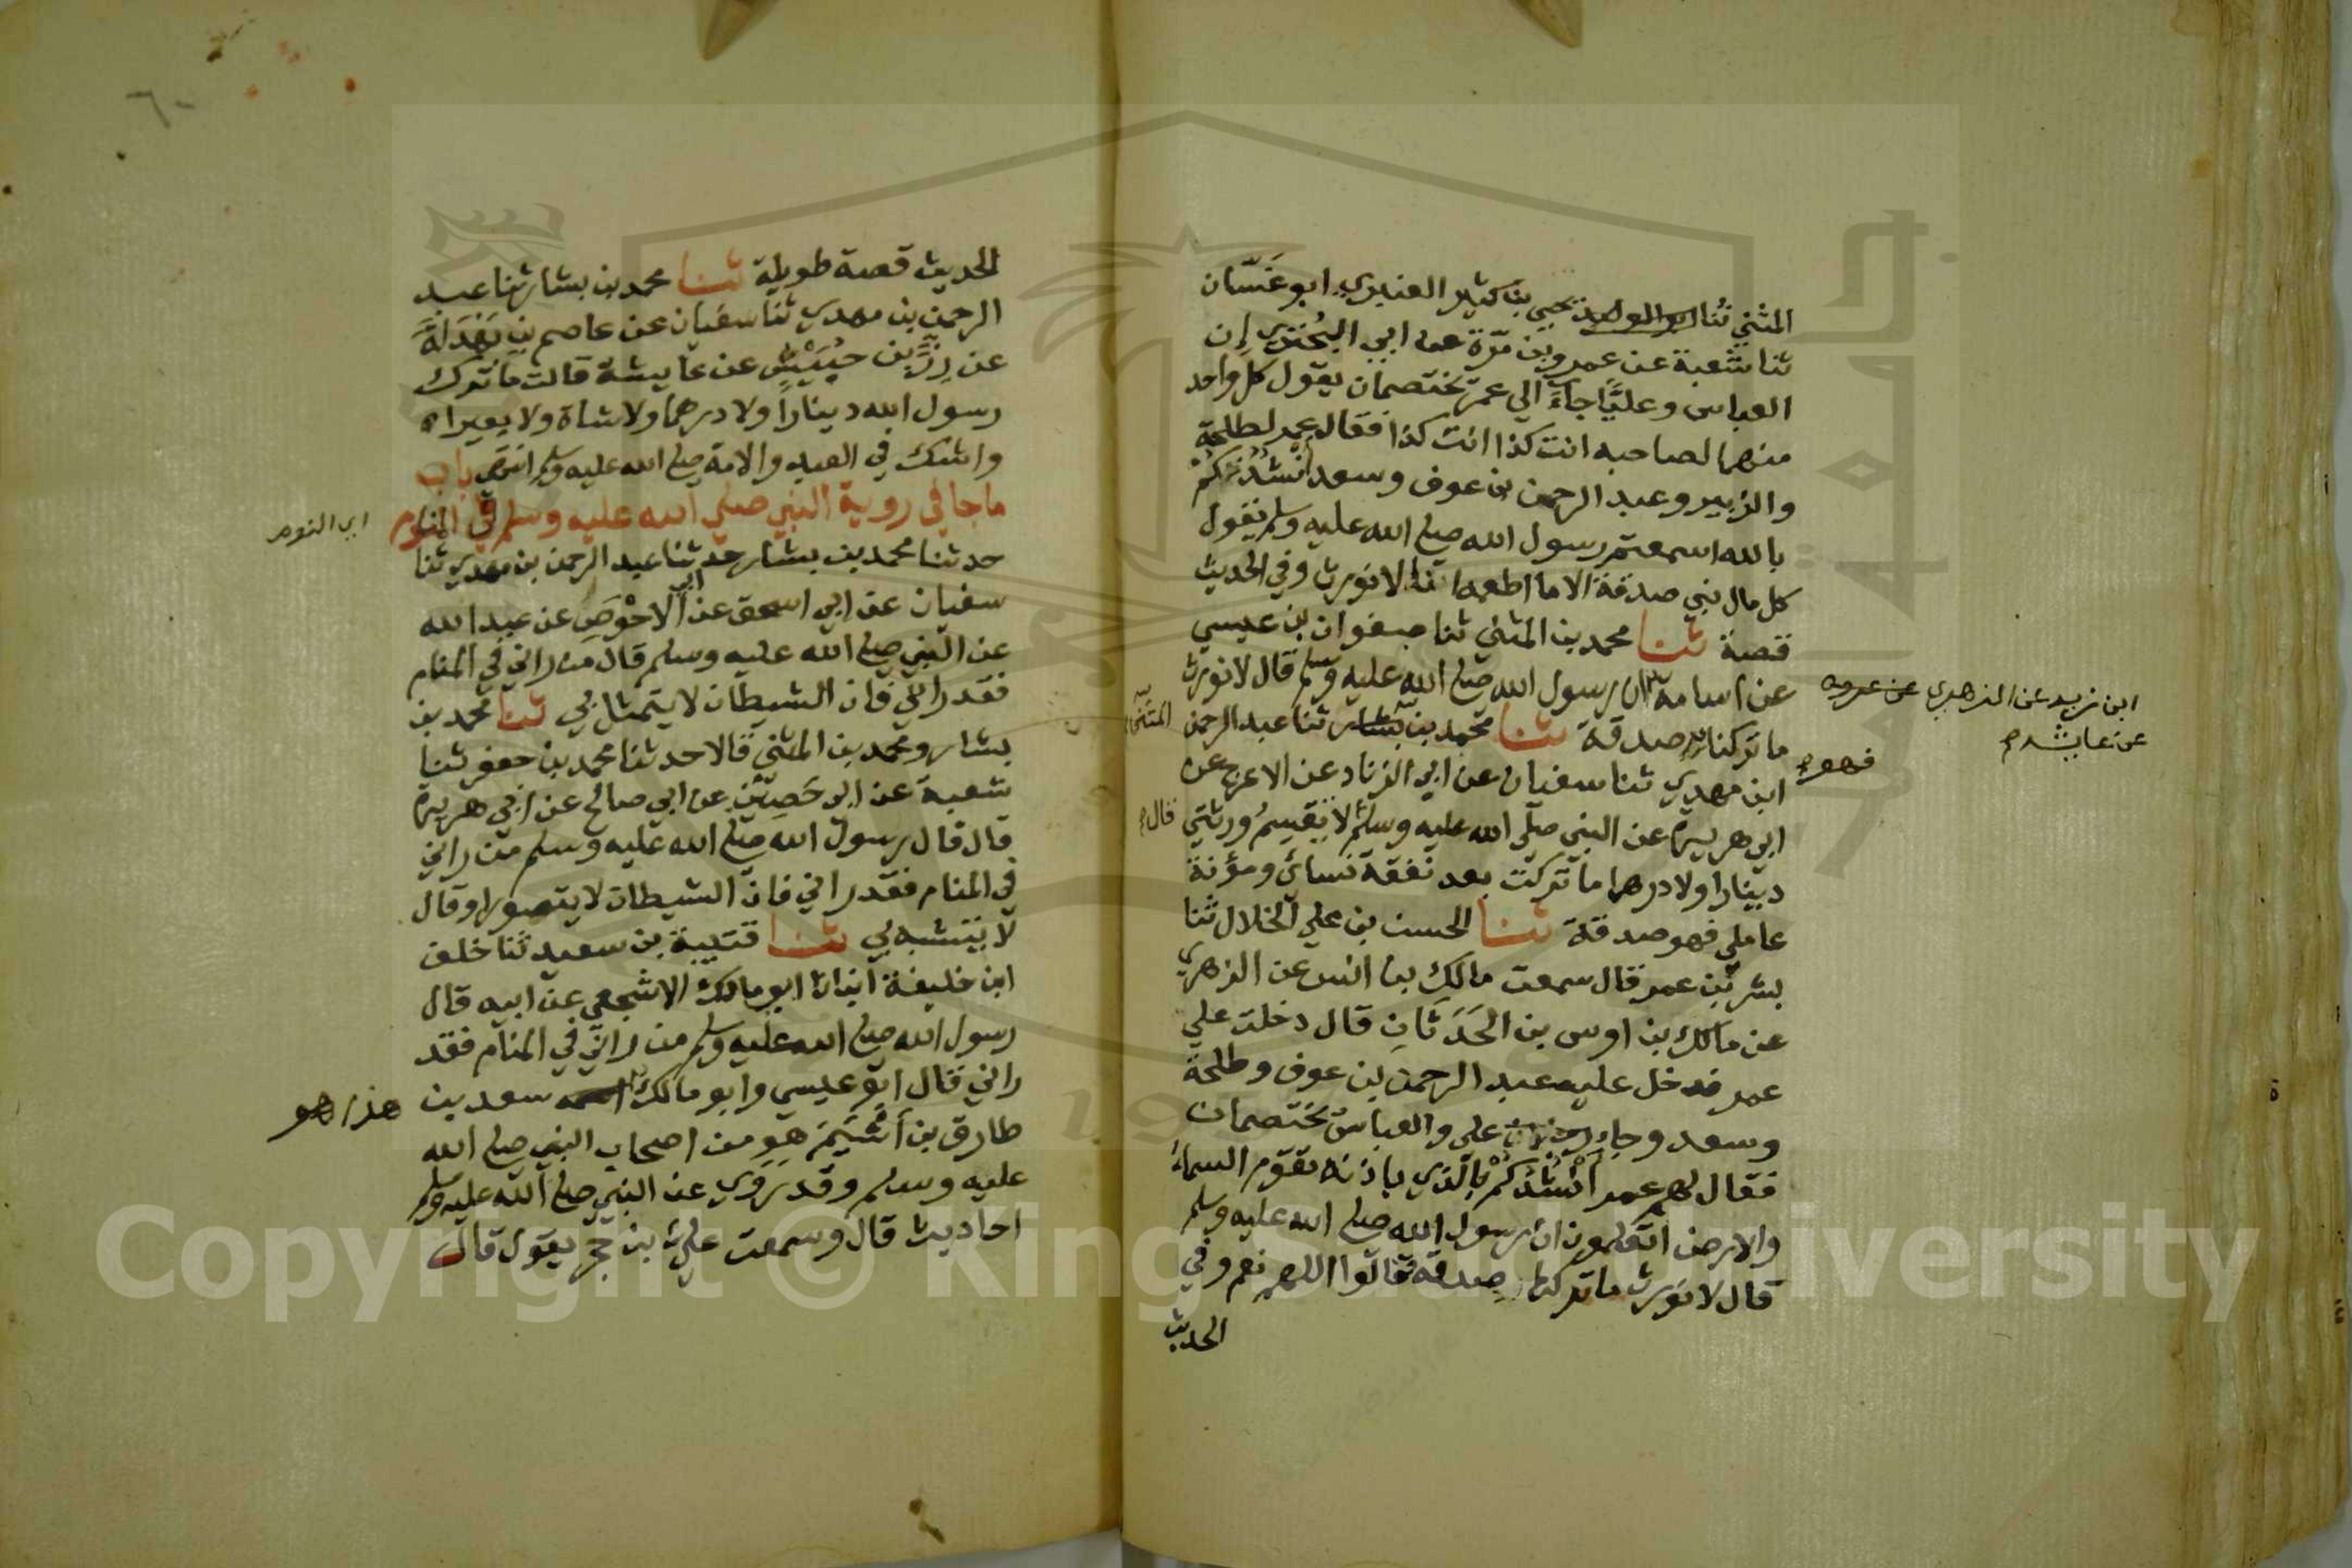 المثني ثنا يحيي بن كثير العنبري ابو غسّان
ثنا شعبة عن عمرو بن مرّة عن ابي البُختري إن
العباس وعليًّا جاءَ الي عمر يختصمان يقول كل واحد
منهما لصاحبه انت كذا انت كذا فقال عمر لطلحة
والزبير وعبد الرحمن بن عوف وسعد أنْشُدُكُمْ
بالله اسمعتم رسول الله صلي الله عليه وسلم يقول
كل مال نبي صدقة الا ما اطعمه انا لا نورث وفي الحديث
قصة ثنا محمد بن المثني ثنا صفوان بن عيسي
عن اسامة ان رسول الله صلي الله عليه وسلم قال لا نورث
ابن زيد عن الزهري عن عروه
عن عايشه
ما تركنا صدقة ثنا محمد بن بشار ثنا عبد الرحمن
المثنى
فهو
ابن مهدي ثنا سفيان عن ابي الزناد عن الاعرج عن
ابي هريرة عن النبي صلي الله عليه وسلم لا يقسِمُ ورثتي
قال
دينارا ولا درهما ما تركت بعد نفقة نسائ ومؤنة
عاملي فهو صدقة ثنا الحسن بن علي الخلال ثنا
بشر بن عمر قال سمعت مالك بن انس عن الزهري
عن مالك بن اوس بن الحَدَثَانِ قال دخلت علي
عمر فدخل عليه عبد الرحمن بن عوف وطلحة
وسعد وجاء علي والعباسُ يَخْتصمان
فقال لهم عمر أَنْشُدُكُمْ بالّذي باذنه تقوم السماءُ
والارض اتعلمون ان رسول الله صلي الله عليه وسلم
قال لا نورث ما تركنا صدقة فقالوا اللهم نعم وفي
الحديث
٦٠
الحديث قصة طويلة ثنا محمد بن بشار ثنا عبد
الرحمن بن مهدي ثنا سفيان عن عاصم بن بَهْدَلَةَ
عن زِرِّ بن حُبَيْشٍ عن عايشة قالت ما ترك
رسول الله دينارًا ولا درهما ولا شاة ولا بعيرا
واشك في العبد والامة صلي الله عليه وسلم انتهي باب
ما جا في روية النبي صلي الله عليه وسلم في المنام
اي النوم
حدثنا محمد بن بشار حدثنا عبد الرحمن بن مهدي ثنا
سفيان عن ابي اسحق عن ابي الاحْوَصِ عن عبد الله
عن النبي صلي الله عليه وسلم قال من راني في المنام
فقد راني فان الشيطان لا يتمثل بي ثنا محمد بن
بشار ومحمد بن المثني قالا حدثنا محمد بن جعفر ثنا
شعبة عن ابي حَصِيْنٍ عن ابي صالح عن ابي هريرة
قال قال رسول الله صلي الله عليه وسلم من راني
في المنام فقد راني فان الشيطان لا يتصور او قال
لا يتشبه بي ثنا قتيبة بن سعيد ثنا خلف
ابن خليفة انبانا ابو مالك الاشجعي عن ابيه قال
رسول الله صلي الله عليه وسلم من راني في المنام فقد
راني قال ابو عيسي وابو مالك سعد بن
هذا هو
طارق بن أَشْيَمَ هو من اصحاب النبي صلي الله
عليه وسلم وقد رَوَي عن النبي صلي الله عليه وسلم
احاديث قال وسمعت عليَّ بن حجر يقول قال
Copyright © King Saud University